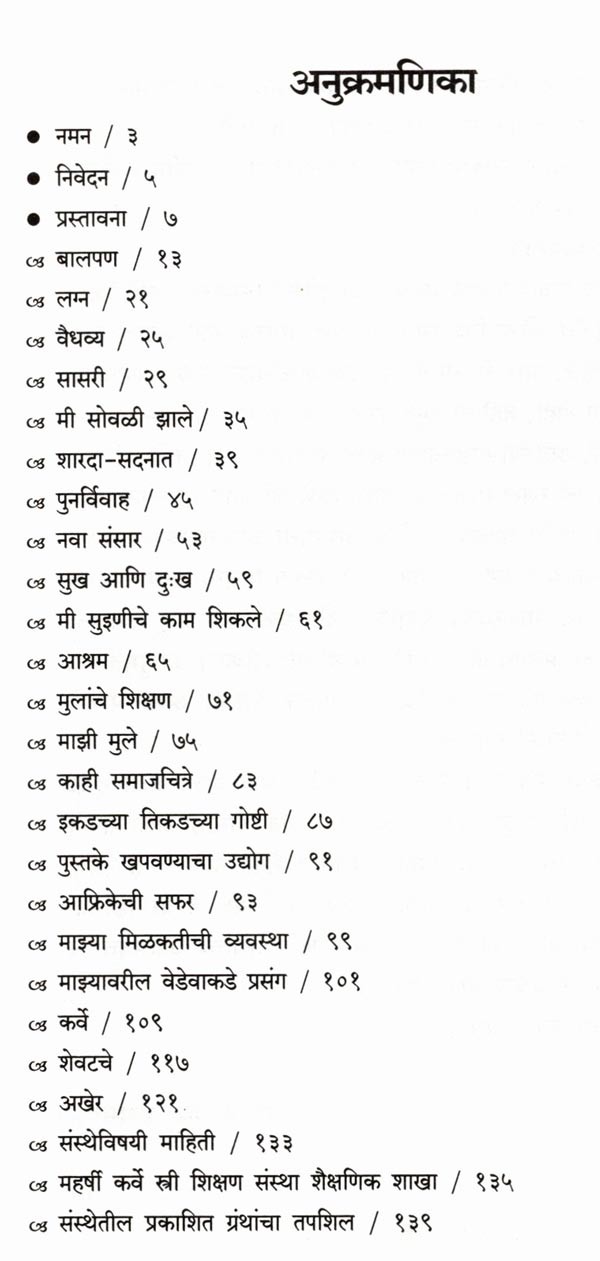 अनुक्रमणिका
● नमन / ३
● निवेदन / ५
● प्रस्तावना / ७
ॐ बालपण / १३
लग्न / २१
वैधव्य / २५
सासरी / २९
मी सोवळी झाले / ३५
शारदा-सदनात / ३९
पुनर्विवाह / ४५
नवा संसार / ५३
सुख आणि दुःख / ५९
मी सुइणीचे काम शिकले / ६१
आश्रम / ६५
मुलांचे शिक्षण / ७१
माझी मुले / ७५
काही समाजचित्रे / ८३
इकडच्या तिकडच्या गोष्टी / ८७
पुस्तके खपवण्याचा उद्योग / ९१
आफ्रिकेची सफर / ९३
माझ्या मिळकतीची व्यवस्था / ९९
माझ्यावरील वेडेवाकडे प्रसंग / १०१
कर्वे / १०९
शेवटचे / ११७
अखेर / १२१
संस्थेविषयी माहिती / १३३
महर्षी कर्वे स्त्री शिक्षण संस्था शैक्षणिक शाखा / १३५
संस्थेतील प्रकाशित ग्रंथांचा तपशिल / १३९